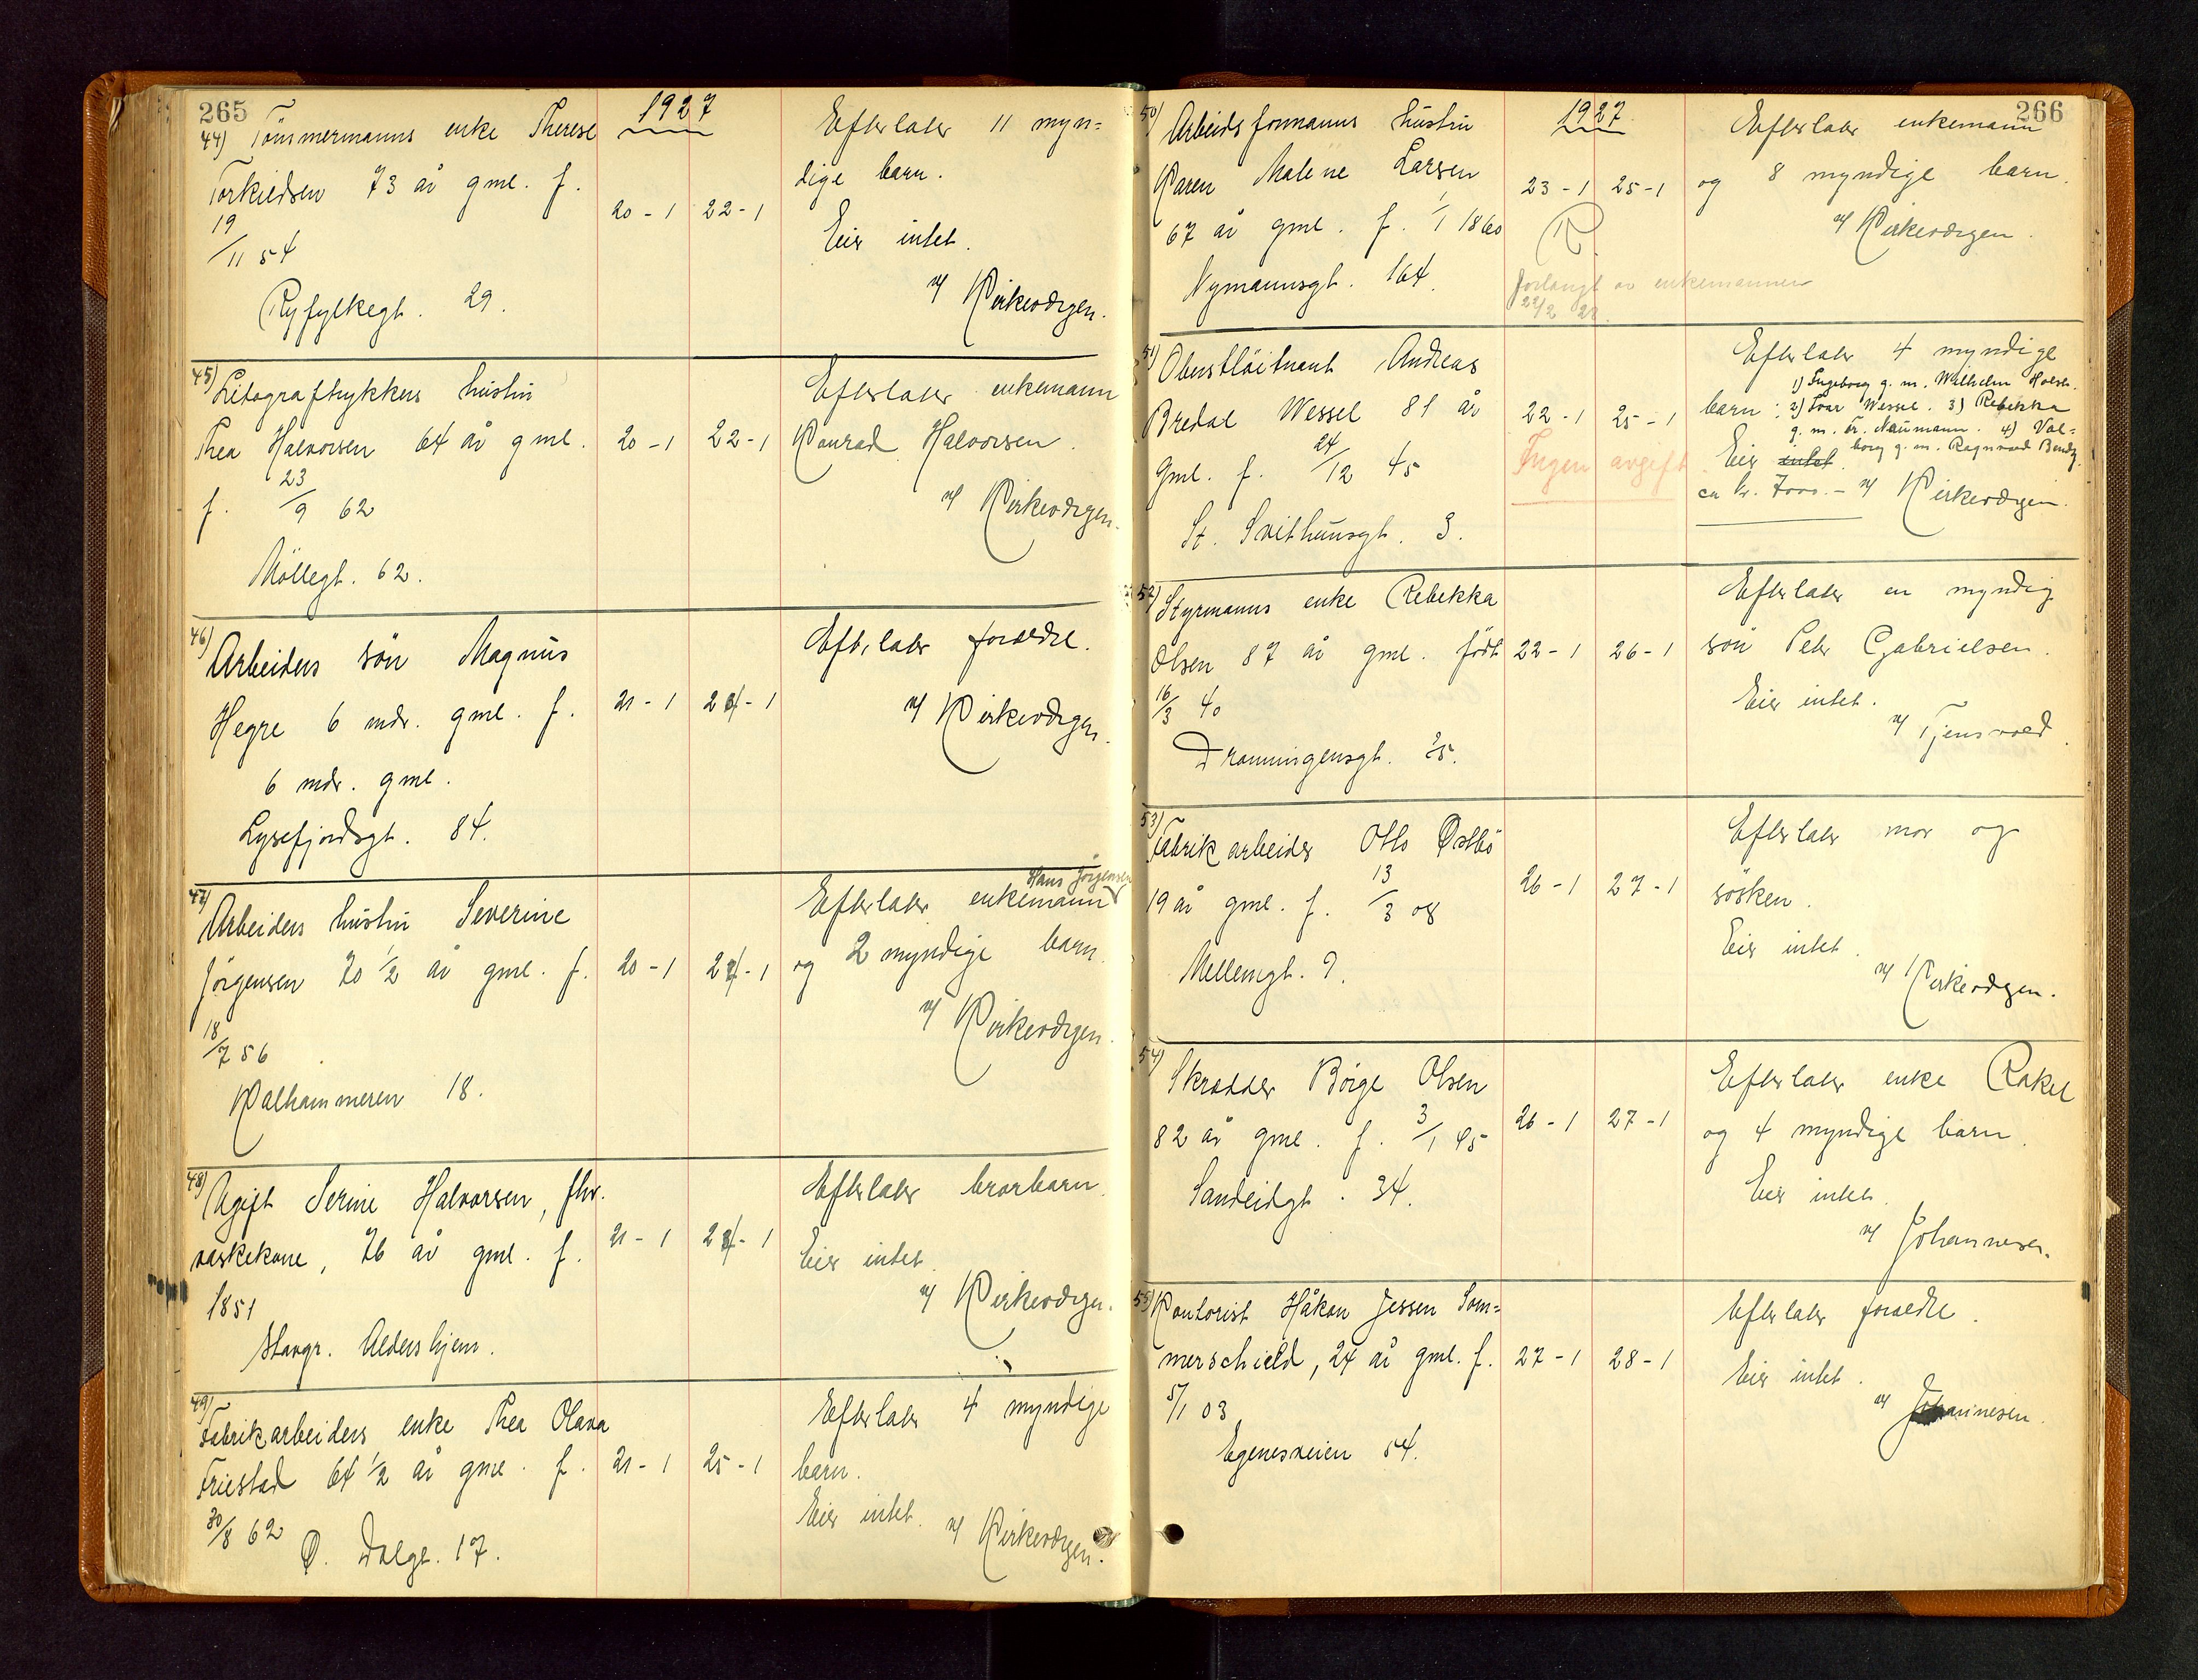 265
1927
44) Tömmermanns enke Therese
Torkildsen 73 år gml. f.
19/11 54
Ryfylkegt. 29.
20-1 22-1
Efterlater 11 myn=
dige barn.
Eier intet.
v/ Kirkevergen.
45) Litograftrykkers hustru
Thea Halvorsen 64 år gml.
f. 23/9 62
Möllegt. 62.
20-1 22-1
Efterlater enkemann
Konrad Halvorsen.
v/ Kirkevergen.
46) Arbeiders sön Magnus
Hegre 6 mdr. gml. f.
6 mdr. gml.
Lysefjordsgt. 84.
21-1 24-1
Eft.later foreldre.
v/ Kirkevergen.
47) Arbeiders hustru Severine
Jörgensen 70 1/2 år gml. f.
18/7 56
Kalhammeren 18.
20-1 24-1
Hans Jörgensen
Efterlater enkemann
og 2 myndige barn.
v/ Kirkevergen.
48) Ugift Serine Halvorsen, fhv.
vaskekone, 76 år gml. f.
1851
Stavgr. Aldershjem.
21-1 24-1
Efterlater brorbarn.
Eier intet.
v/ Kirkevergen.
49) Fabrikarbeiders enke Thea Olava
Friestad 64 1/2 år gml. f.
30/8 62
Ø. Dalgt. 17.
21-1 25-1
Efterlater 4 myndige
barn.
Eier intet. v/ Kirkevergen.
266
1927
50) Arbeidsformanns hustru
Karen Malene Larsen
67 år gml. f. 1/1 1860
Nymannsgt. 164.
23-1 25-1
R
forlangt av enkemannen
22/2 28.
Efterlater enkemann
og 8 myndige barn.
v/ Kirkevergen.
51) Oberstlöitnant Andreas
Bredal Wessel 81 år
gml. f. 24/12 45
St. Svithunsgt. 3.
22-1 25-1
Ingen avgift
Efterlater 4 myndige
barn: 1) Ingeborg g. m. Wilhelm Holst.
2) Ivar Wessel. 3) Rebekka
g. m. Fr. Naumann. 4) Val=
borg g. m. Ragnvald Bendz.
Eier intet.
ca kr. 7000.- v/ Kirkevergen.
52) Styrmanns enke Rebekka
Olsen 87 år gml. födt
16/3 40
Dronningensgt. 25.
22-1 26-1
Efterlater en myndig
sön Peter Gabrielsen.
Eier intet.
v/ Tjensvold.
53) Fabrikarbeider Otto Østbö
19 år gml. f. 13/3 08
Mellemgt. 9.
26-1 27-1
Efterlater mor og
sösken.
Eier intet.
v/ Kirkevergen.
54) Skredder Börge Olsen
82 år gml. f. 3/1 45
Sandeidgt. 34.
26-1 27-1
Efterlater enke Rakel
og 4 myndige barn.
Eier intet.
v/ Johannesen.
55) Kontorist Håkon Jessen Som=
merschield, 24 år gml. f.
5/1 03
Egenesveien 54.
27-1 28-1
Efterlater foreldre.
Eier intet.
v/ Johannesen.